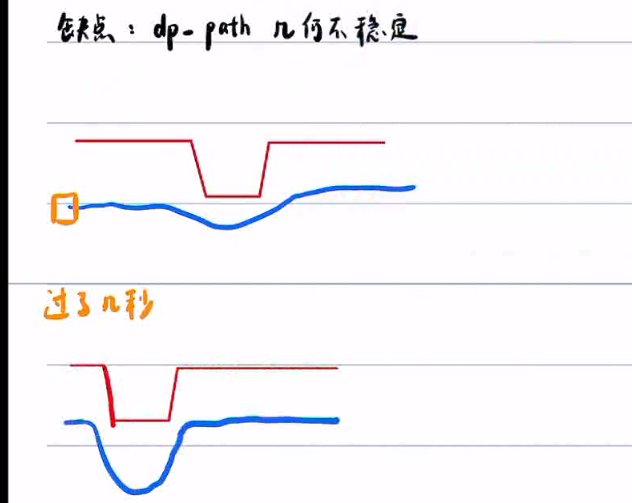 缺点：dp-path 几何不稳定
过了几秒